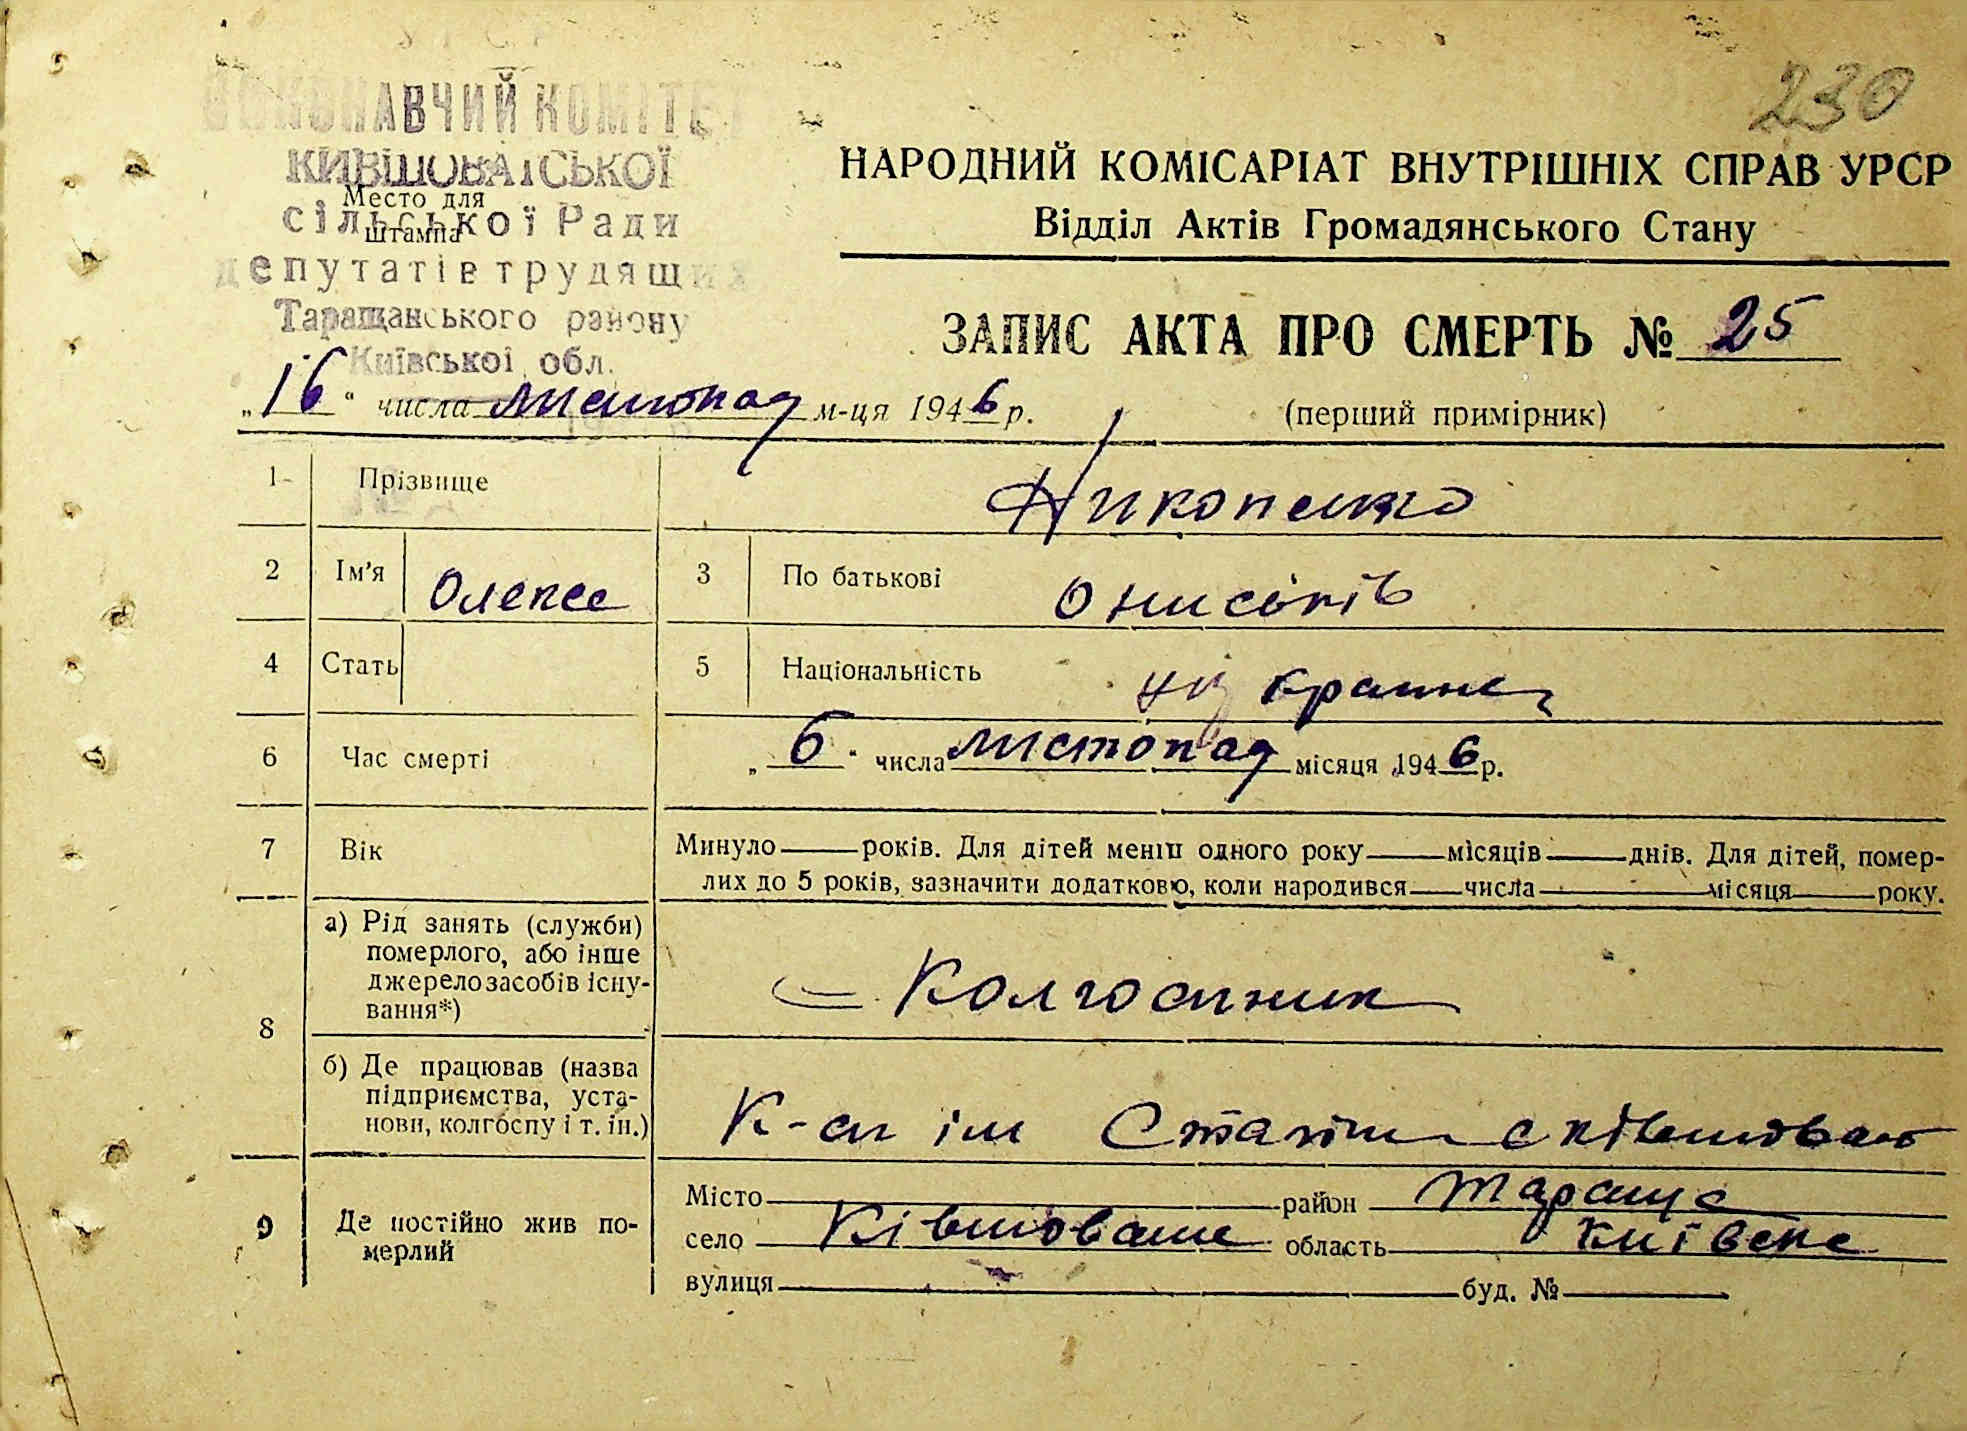 230
ВИКОНАВЧИЙ КОМІТЕТ
КИВШОВАТСЬКОЇ
Место для
сільської Ради
штампа
депутатів трудящих
Таращанського району
Київської обл.
НАРОДНИЙ КОМІСАРІАТ ВНУТРІШНІХ СПРАВ УРСР
Відділ Актів Громадянського Стану
ЗАПИС АКТА ПРО СМЕРТЬ № 25
„16“ числа листопад м-ця 1946 р.
(перший примірник)
1 Прізвище Никопенко
2 Ім'я Олекса 3 По батькові
4 Стать 5 Національність украинец
6 Час смерті „6“ числа листопад місяця 1946 р.
7 Вік Минуло — років. Для дітей менш одного року — місяців — днів. Для дітей, помер-
лих до 5 років, зазначити додатково, коли народився — числа — місяця — року.
8 а) Рід занять (служби)
померлого, або інше
джерело засобів існу-
вання*)
Колгоспник
б) Де працював (назва
підприємства, уста-
нови, колгоспу і т. ін.)
К-сп ім Сталіна с Ківшоват
9 Де постійно жив по-
мерлий
Місто — район Тараща
село Ківшовате область Київська
вулиця — буд. № —